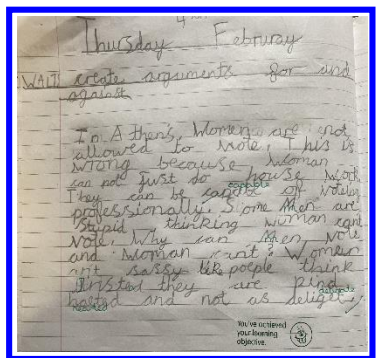 Thursday Februray
WALT create arguments for and
against
In Athen's, Women are not
allowed to vote, This is
wrong because, woman
can not just do house work
They can be capable of voteing
capable
professionally. Some Men are
stupid thinking woman cant
vote, Why can Men vote
and woman can't? Women
ant sassy like poeple think
Insted they are kind
delicate
hearted and not as deliget
hearted
You've achieved
your learning
objective.